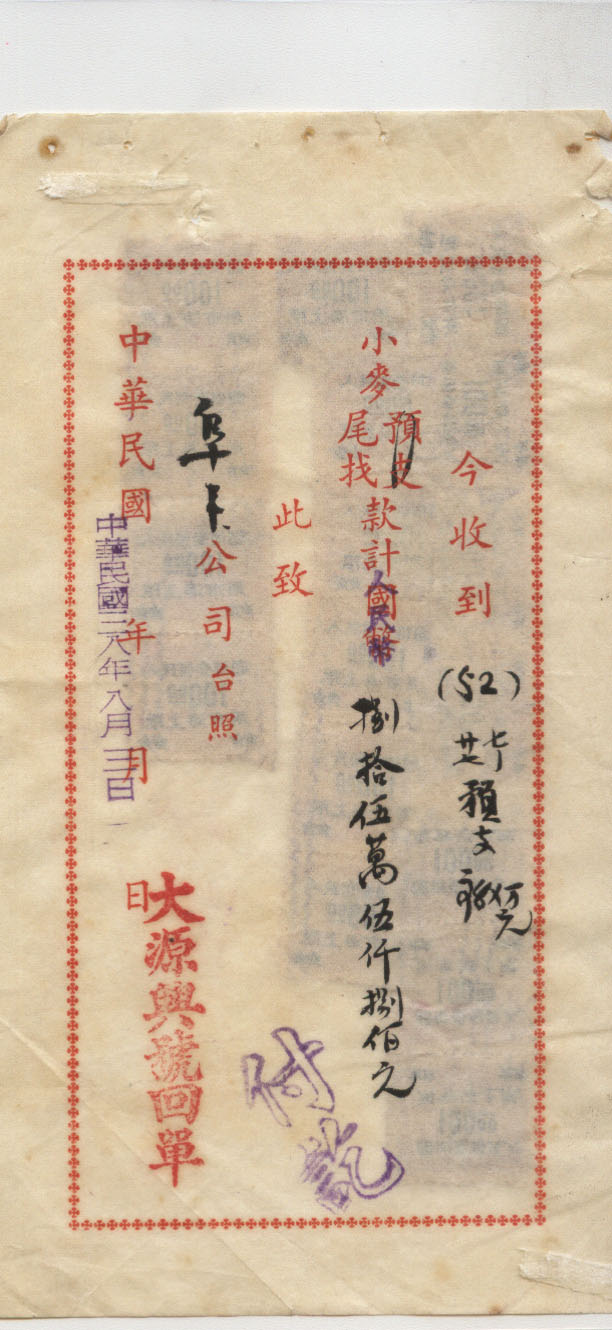 今收到
(52)
預支
小麥
預支
尾找
款計國幣
人民幣
捌拾伍萬伍仟捌佰元
此致
阜豐公司台照
中華民國 年 月 日
中華民國三八年八月三日
大源興號回單
付訖